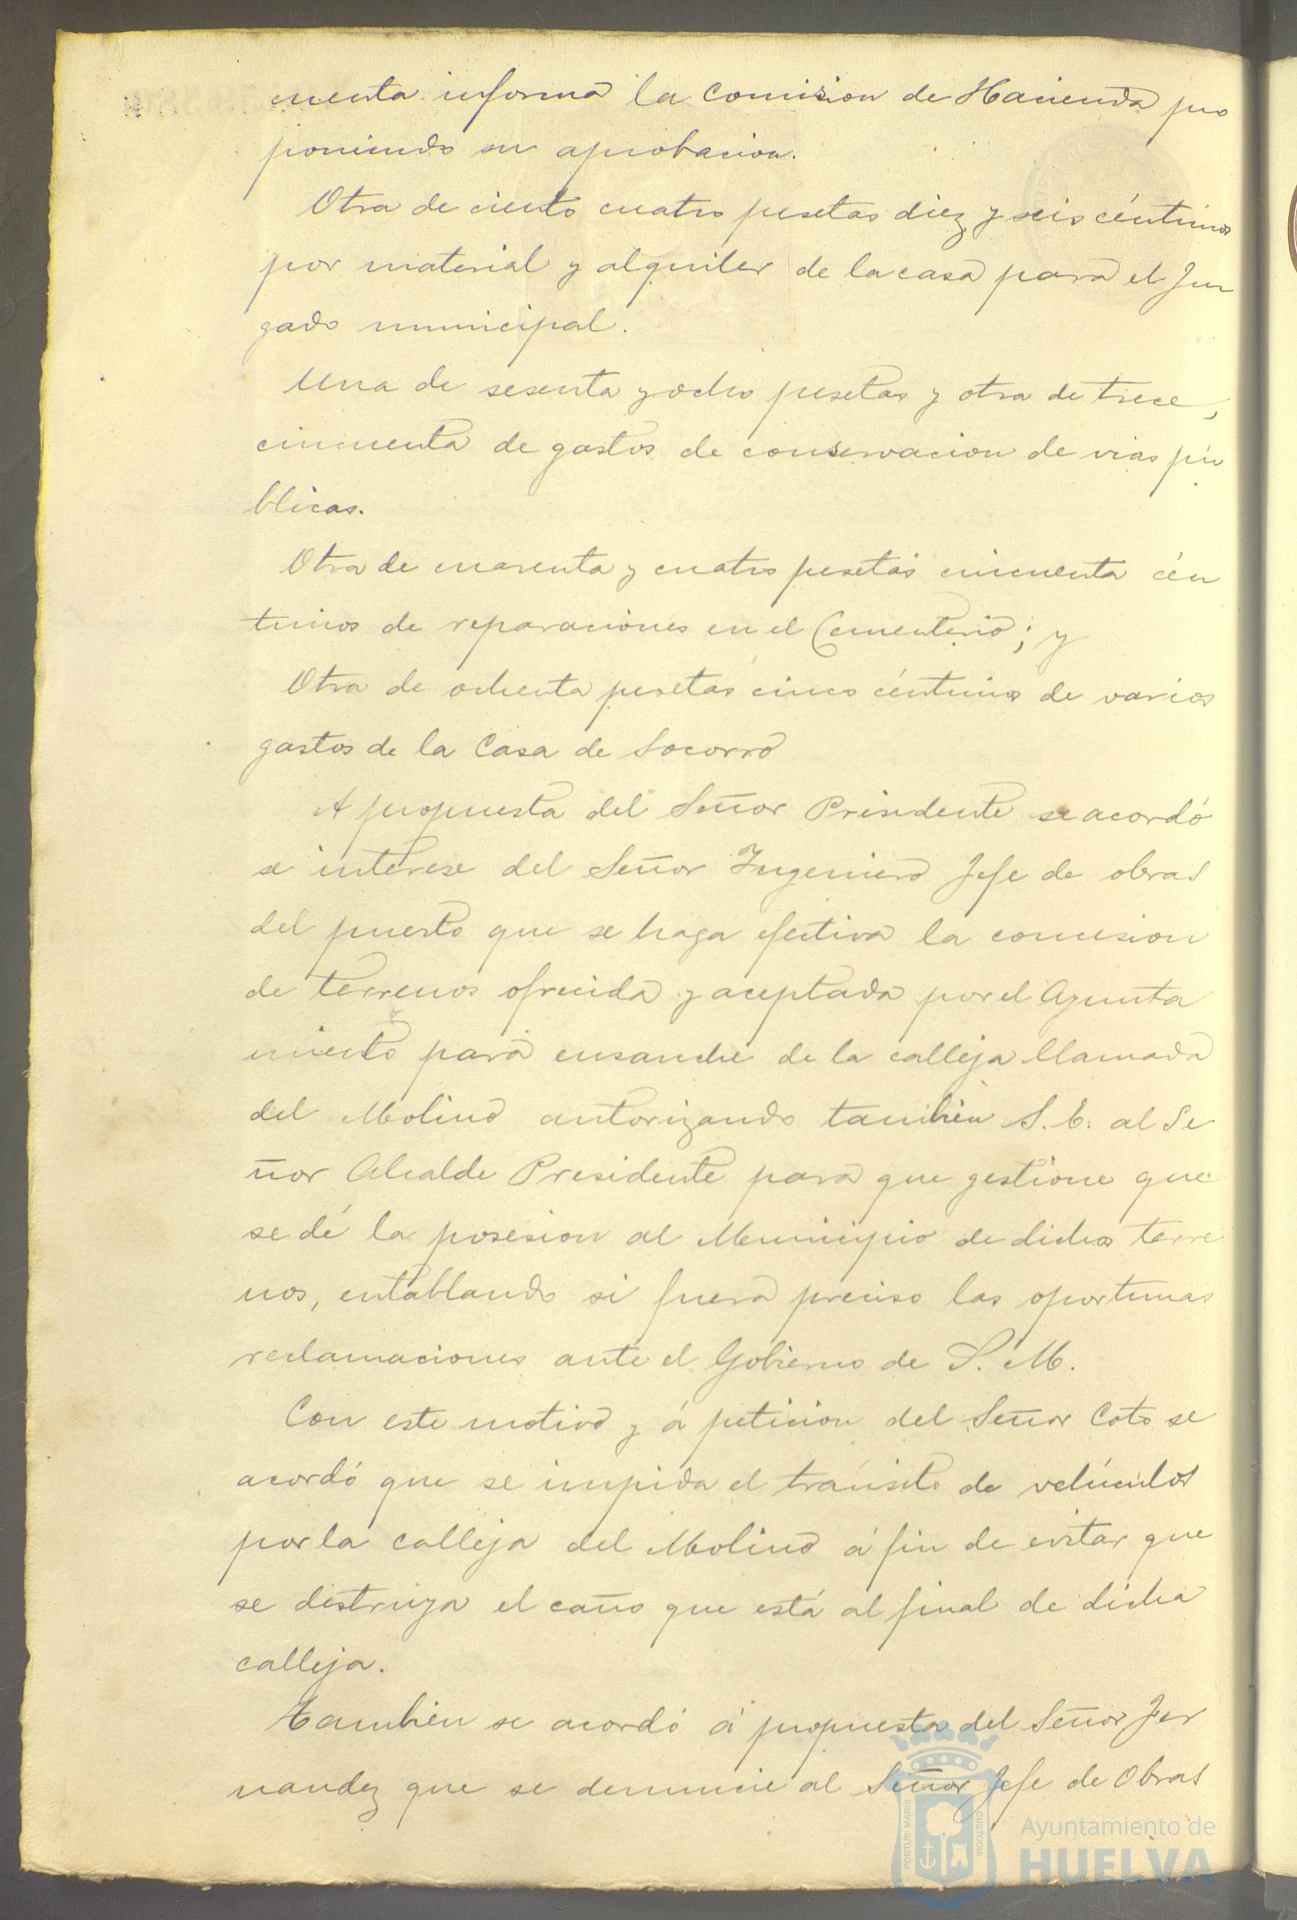 cuenta informa la Comision de Hacienda pro
poniendo su aprobacion.
Otra de ciento cuatro pesetas diez y seis céntimos
por material y alquiler de la casa para el Juz
gado municipal.
Una de sesenta y ocho pesetas y otra de trece,
cincuenta de gastos de conservacion de vias pú
blicas.
Otra de cuarenta y cuatro pesetas cincuenta cén
timos de reparaciones en el Cementerio; y
Otra de ochenta pesetas cinco céntimos de varios
gastos de la Casa de Socorro
A propuesta del Señor Presidente se acordó
se interese del Señor Ingeniero Jefe de obras
del puerto que se haga efectiva la concesion
de terrenos ofrecida y aceptada por el Ayunta
miento para ensanche de la calleja llamada
del Molino autorizando tambien S. E. al Se
ñor Alcalde Presidente para que gestione que
se dé la posesion al Municipio de dichos terre
nos, entablando si fuera preciso las oportunas
reclamaciones ante el Gobierno de S. M.
Con este motivo y á peticion del Señor Coto se
acordó que se impida el tránsito de vehículos
por la calleja del Molino á fin de evitar que
se destruya el caño que está al final de dicha
calleja.
Tambien se acordó á propuesta del Señor Fer
nandez que se denuncie al Señor Jefe de Obras
PORTUS MARIS
CUSTODIA
Ayuntamiento de
HUELVA